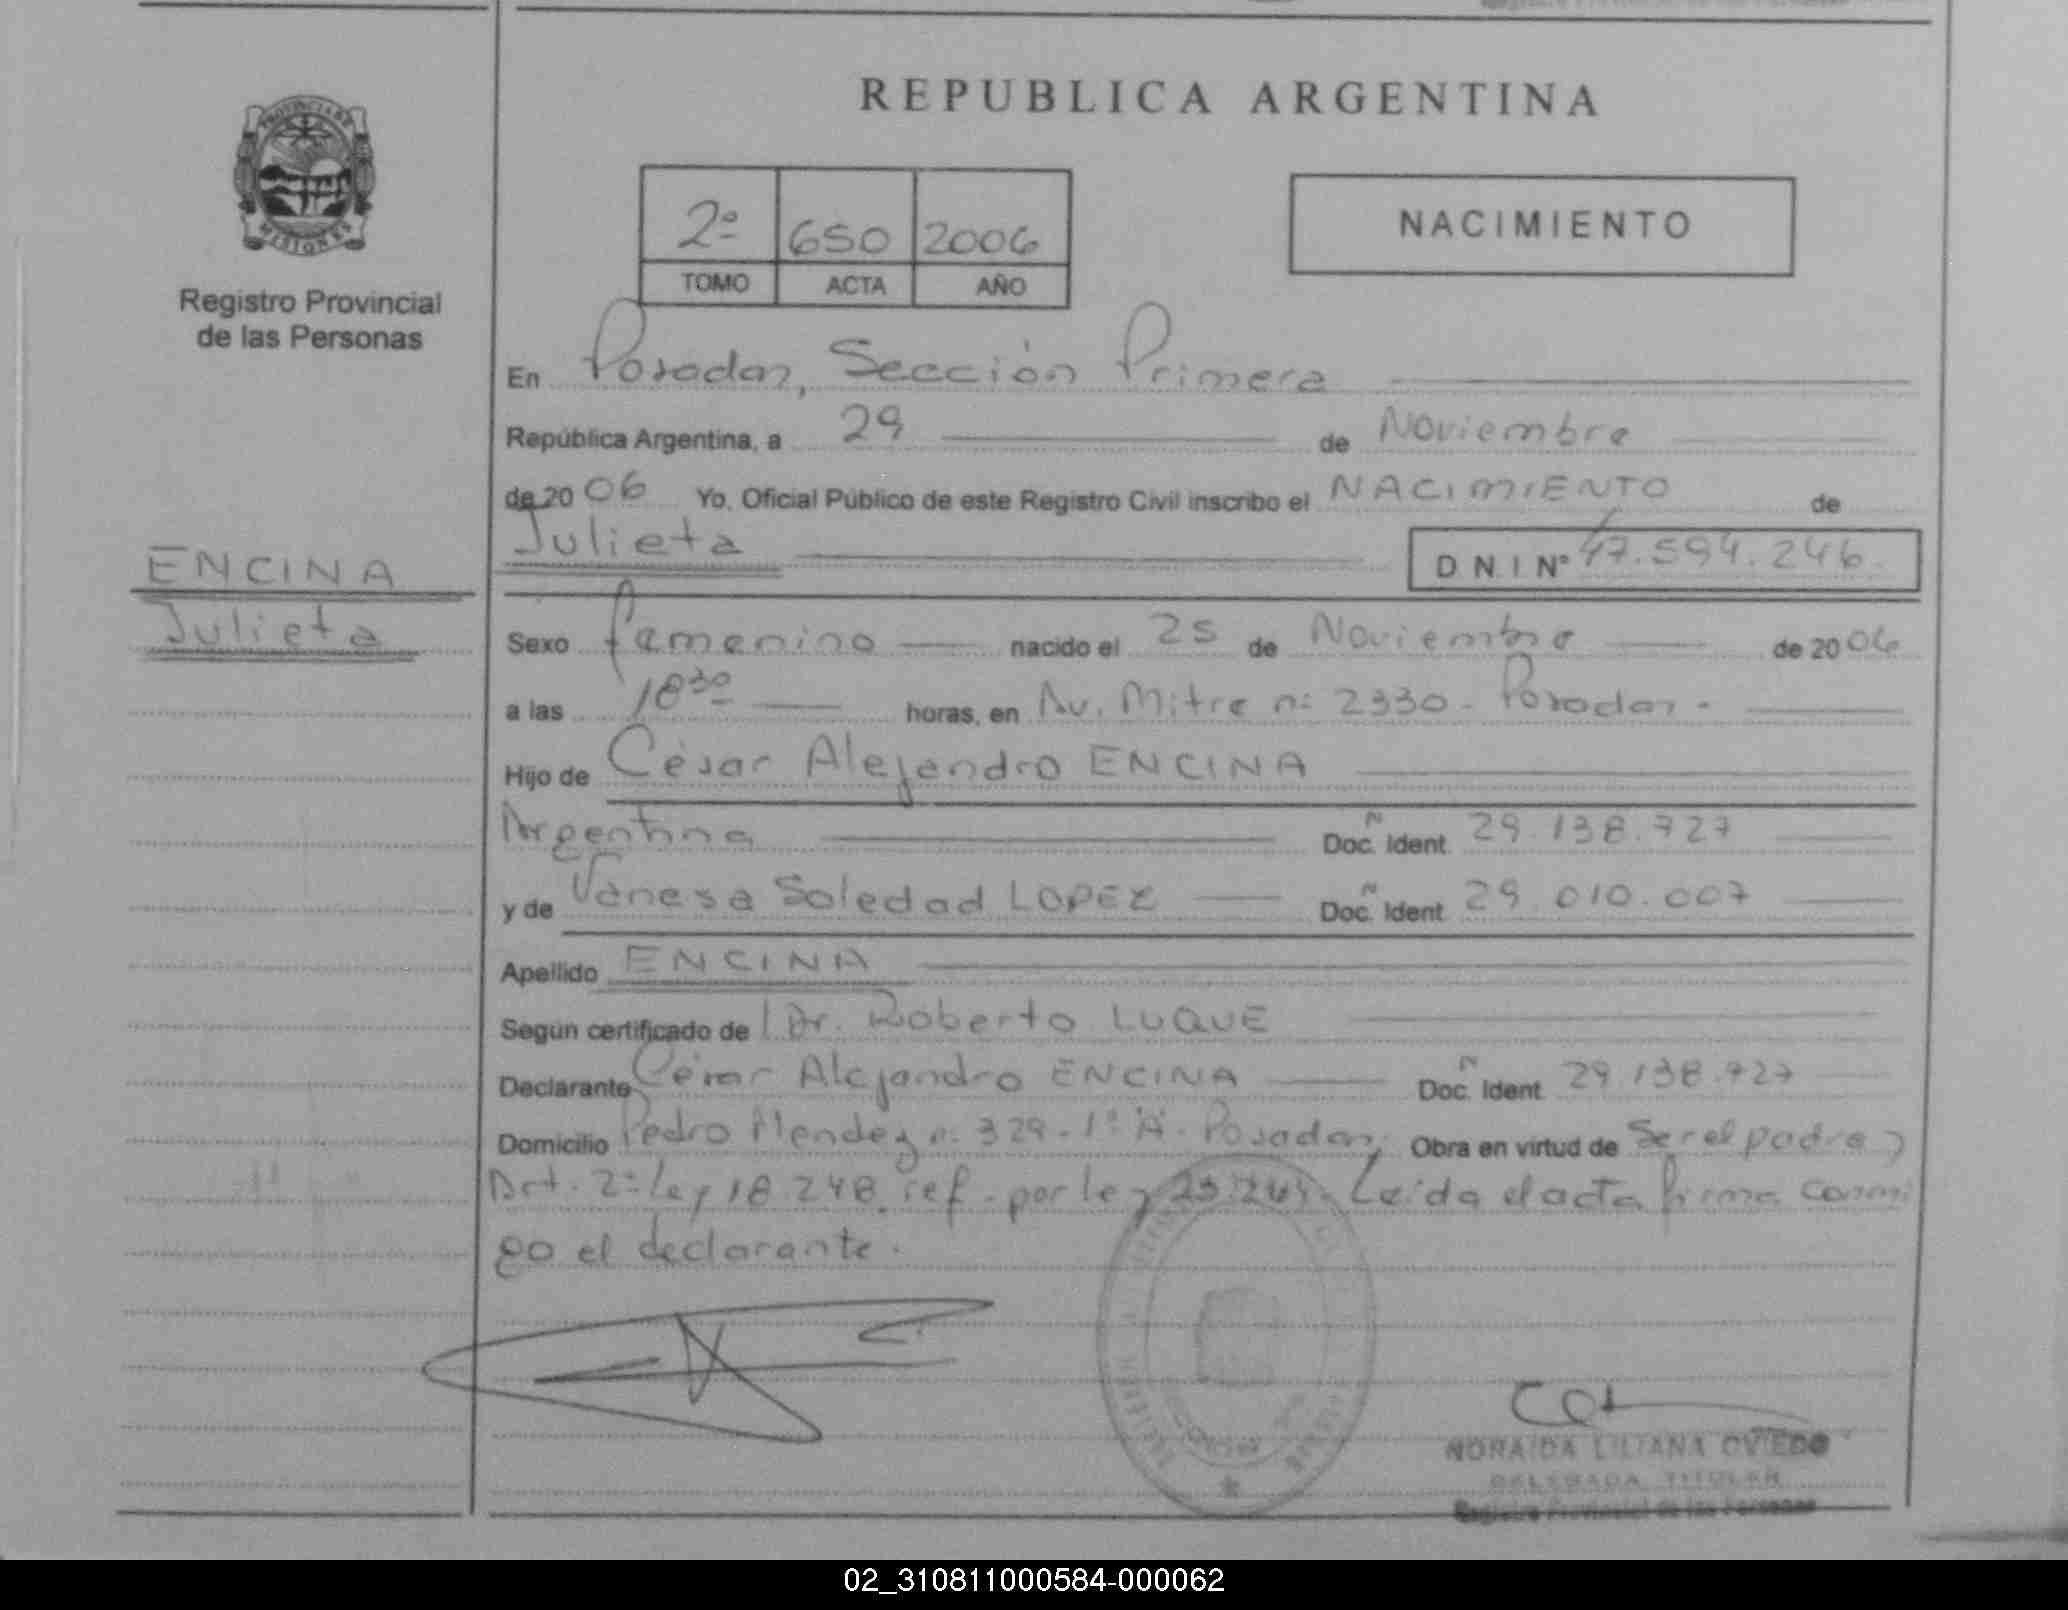 REPUBLICA ARGENTINA
PROVINCIA DE
MISIONES
Registro Provincial
de las Personas
2º 650 2006
TOMO ACTA AÑO
NACIMIENTO
En Posadas, Sección Primera
República Argentina, a 29 de Noviembre
de 2006 Yo, Oficial Público de este Registro Civil inscribo el NACIMIENTO de
Julieta D N. I Nº 47.594.246.
ENCINA
Julieta
Sexo femenino nacido el 25 de Noviembre de 2006
a las 18³⁰ horas, en Av. Mitre nº 2330 - Posadas -
Hijo de César Alejandro ENCINA
Argentina Doc. Ident. 29.138.727
y de Vanesa Soledad LOPEZ Doc. Ident 29.010.007
Apellido ENCINA
Según certificado de Dr. Roberto LUQUE
Declarante César Alejandro ENCINA Doc. Ident 29.138.727
Domicilio Pedro Mendez nº 329 - 1º "A" - Posadas, Obra en virtud de Ser el padre y
Art. 2º ley 18.248. ref. por ley Leída el acta firma conmi
go el declarante.
NORAIDA LILIANA OVIEDO
DELEGADA TITULAR
Registro Provincial de las Personas
02_310811000584-000062